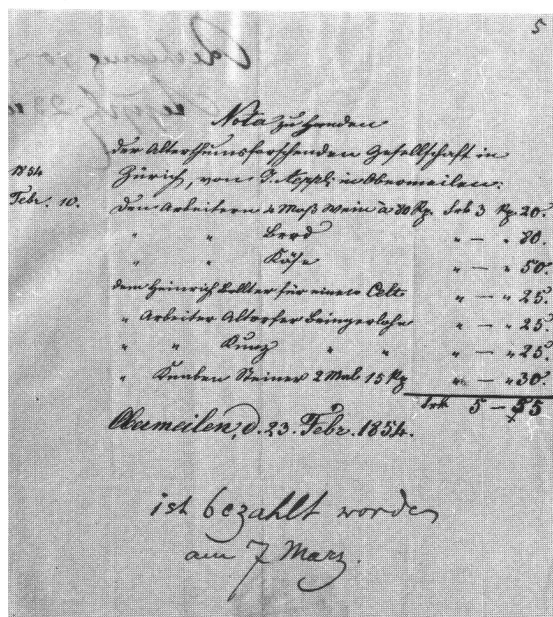 5
Nota zu Handen
der Alterthumsforschenden Gesellschaft in
Zürich, von J. Aeppli in Obermeilen:
1854
Febr. 10. den Arbeitern 4 Maß Wein à 80 Rp. frk 3 Rp. 20.
" " Brod " — " 80.
" " Käse " — " 50.
dem Heinrich für einen Celt " — " 25.
" Arbeiter Altorfer " — " 25.
" " Kunz " " " — " 25.
" Knaben Steiner 2 Mal 15 Rp " — " 30.
frk 5 — 55
Obermeilen, d. 23. Febr. 1854.
ist bezahlt worden
am 7 Marz.